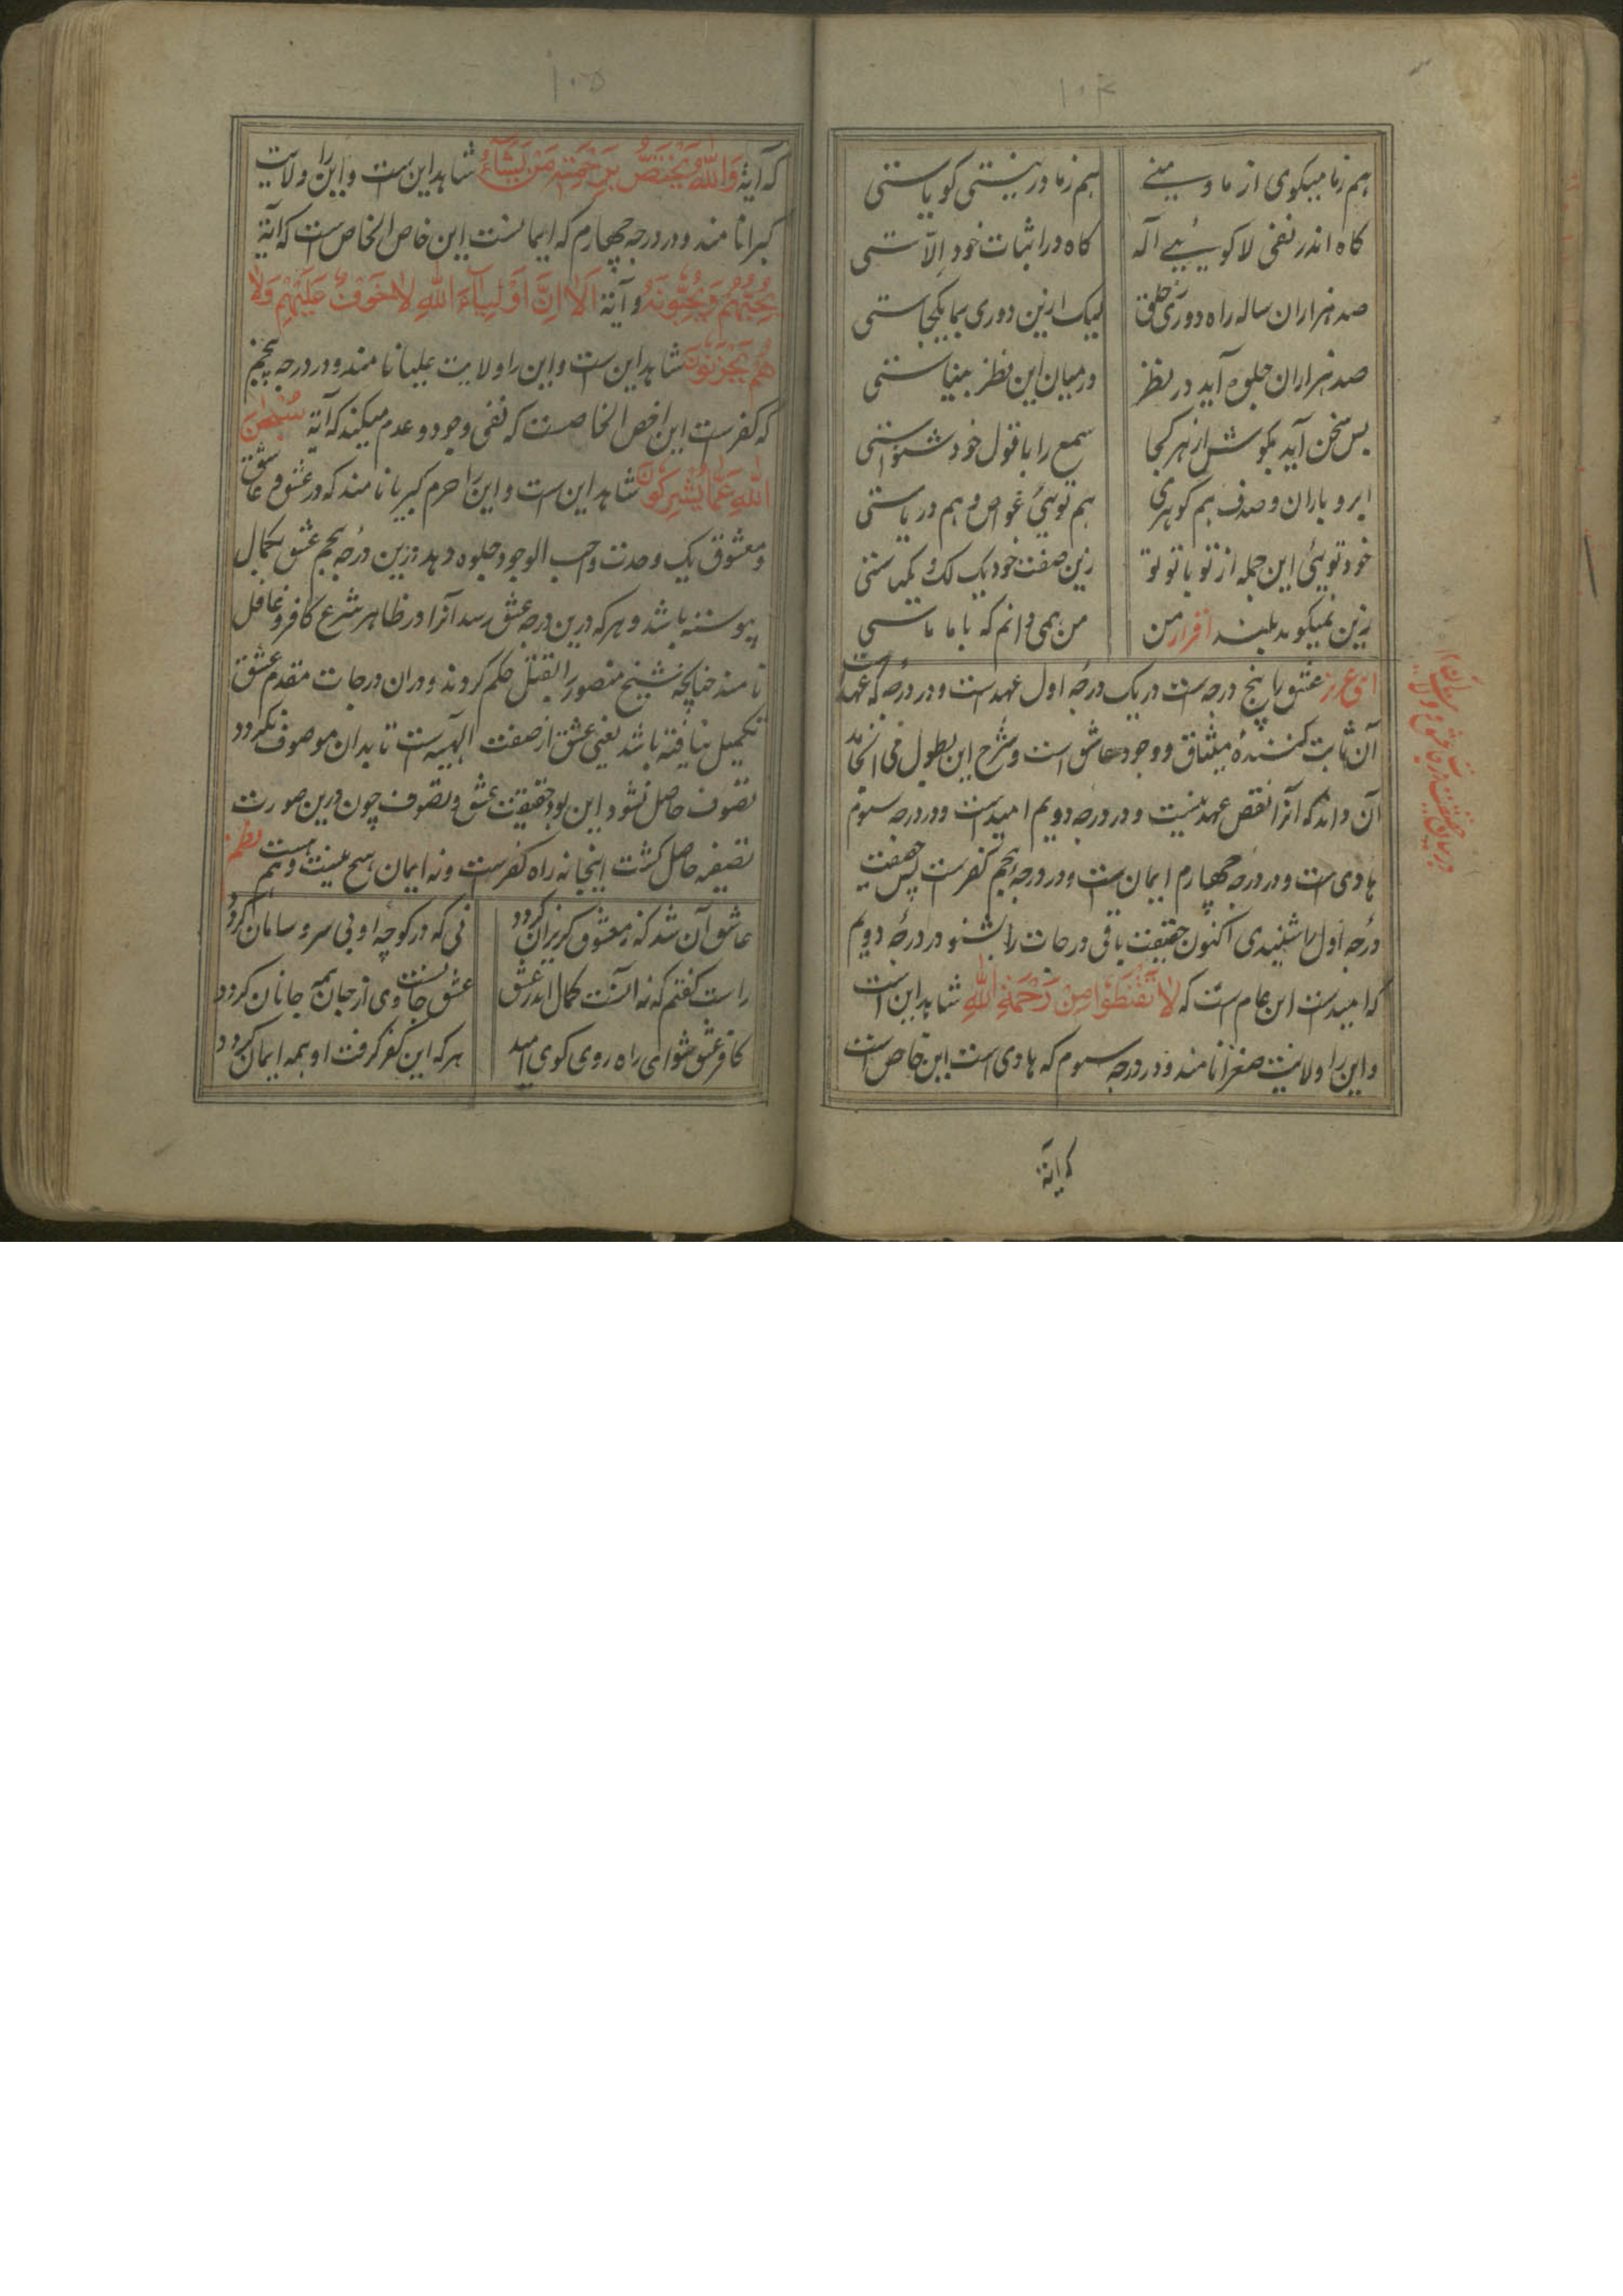 ۱۰۴
هم زما میکوی از ما و سینے هم زما در نیستی کویاستی
کاه اندر نفی لا کوییے اله کاه در اثبات خود الّاستی
صد هزاران ساله راه دوری خلق لیک ازین دوری بما یکجاستی
صد هزاران جلوه آید در نظر در میان این نظر بیناستی
بس سخن آید بکوشش از هر کجا سمع را با قول خود شنواستی
ابر و باران و صدف هم کوهری هم توئی غواص و هم دریاستی
خود توئی این جمله از تو با تو تو زین صفت خود یک لک و یکتاستی
زین نمیکوید بلند اقرار من من همی دانم که با ما ماستی
ای عزیز عشق را پنج درجه است در یک درجه اول عهدست و در درجه که عهدست
آن ثابت کننده میثاق و وجود عاشق است و شرح این بطول فی اتحاد
آن داند که آنرا نقص عهد نیست و در درجه دویم امیدست و در درجه سیوم
هادی است و در درجه چهارم ایمان ست و در درجه پنجم کفرست پس حقیقت
درجه اول را شنیدی اکنون حقیقت باقی درجات را بشنو در درجه دویم
که امیدست این عام ست که لَا تَقْنَطُوا مِنْ رَحْمَةِ اللّٰهِ شاهد این است
و این را ولایت صغرا نامند و در درجه سیوم که هادی است این خاص است
که آیة
۱۰۵
که آیة وَاللّٰهُ يَخْتَصُّ بِرَحْمَتِهِ مَنْ يَشَآءُ شاهد این ست و این را ولایت
کبرا نامند و در درجه چهارم که ایمانست این خاص الخاص ست که آیة
يُحِبُّهُمْ وَيُحِبُّونَهُ و آیة اَلَا اِنَّ اَوْلِيَآءَ اللّٰهِ لَا خَوْفٌ عَلَيْهِمْ وَلَا
هُمْ يَحْزَنُونَ شاهد این ست و این را ولایت علیا نامند و در درجه پنجم
که کفرست این اخص الخاصست که نفی وجود و عدم میکند که آیة سُبْحَانَ
اللّٰهِ عَمَّا يُشْرِكُونَ شاهد این ست و این را حرم کبریا نامند که در عشق و عاشق
و معشوق یک وحدت واجب الوجود جلوه دهد و زین درجه پنجم عشق بکمال
پیوسته باشد و هر که درین درجه عشق رسد آنرا در ظاهر شرع کافر و غافل
نامند چنانچه شیخ منصور را بقتل حکم کردند و دران درجات مقدم عشق
تکمیل نیافته باشد یعنی عشق از صفت الهیه ست تا بدان موصوف نکردد
تصوف حاصل نشود این بود حقیقت عشق و تصوف چون درین صورت
تصفیه حاصل کشت اینجا نه راه کفرست و نه ایمان هیچ نیست و هم هست نظم
عاشق آن شد که ز معشوق کریزان کردد نی که در کوچه او بی سر و سامان کردد
راست کفتم که نه آنست کمال اندر عشق عشق جانست وی از جان همه جانان کردد
کافر عشق شو ای راه روی کوی امید هر که این کفر کرفت او همه ایمان کردد